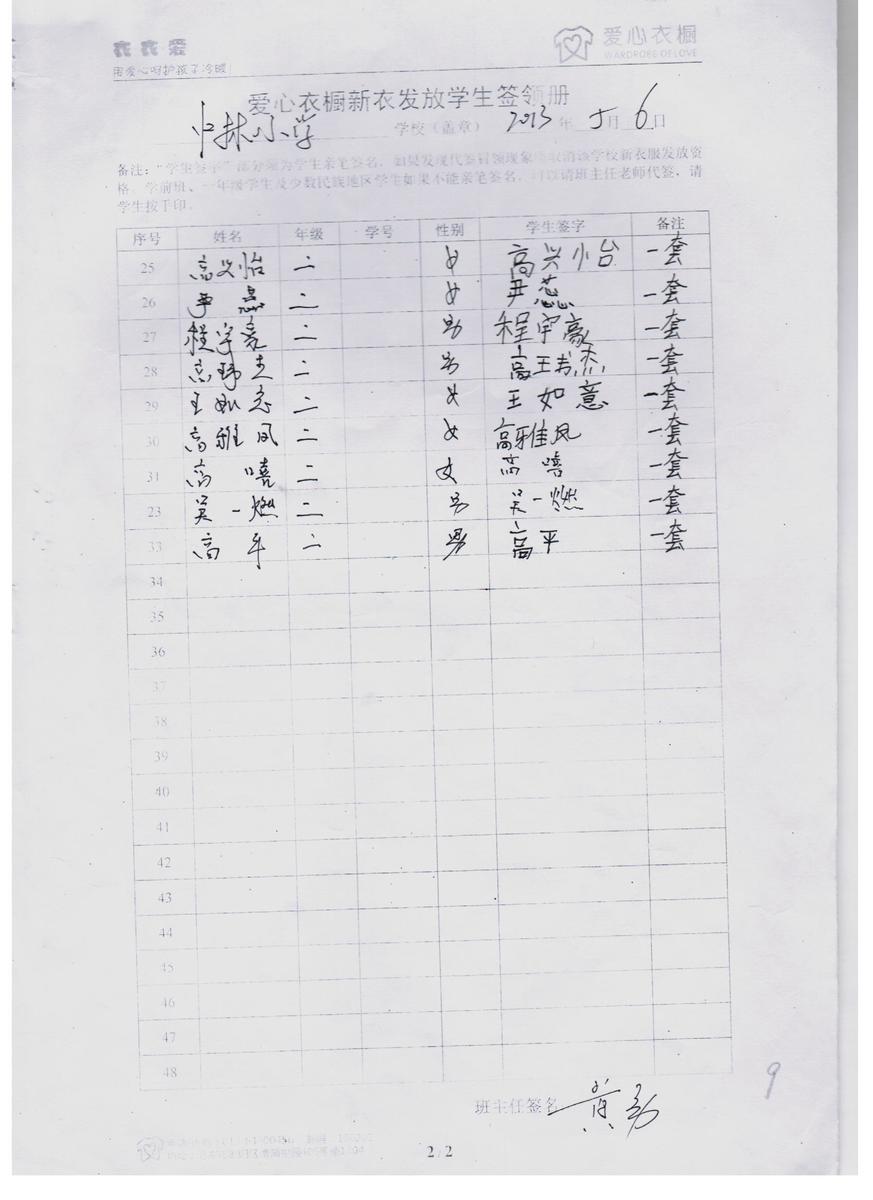 衣衣爱
用爱心呵护孩子冷暖!
爱心衣橱
WARDROBE OF LOVE
爱心衣橱新衣发放学生签领册
中林小学 学校（盖章） 2013 年 5 月 6 日
备注："学生签字"部分须为学生亲笔签名，如果发现代签冒领现象将取消该学校新衣服发放资
格。学前班、一年级学生及少数民族地区学生如果不能亲笔签名，可以请班主任老师代签，请
学生按手印。
序号 姓名 年级 学号 性别 学生签字 备注
25 高兴怡 二 女 高兴怡 一套
26 尹蕊 二 女 尹蕊 一套
27 程宇豪 二 男 程宇豪 一套
28 高玮杰 二 男 高 杰 一套
29 王如意 二 女 王如意 一套
30 高雅凤 二 女 高雅凤 一套
31 高嘻 二 女 高嘻 一套
23 吴一燃 二 男 吴一燃 一套
33 高平 二 男 高平 一套
34
35
36
37
38
39
40
41
42
43
44
45
46
47
48
班主任签名 黄勇
9
2/2